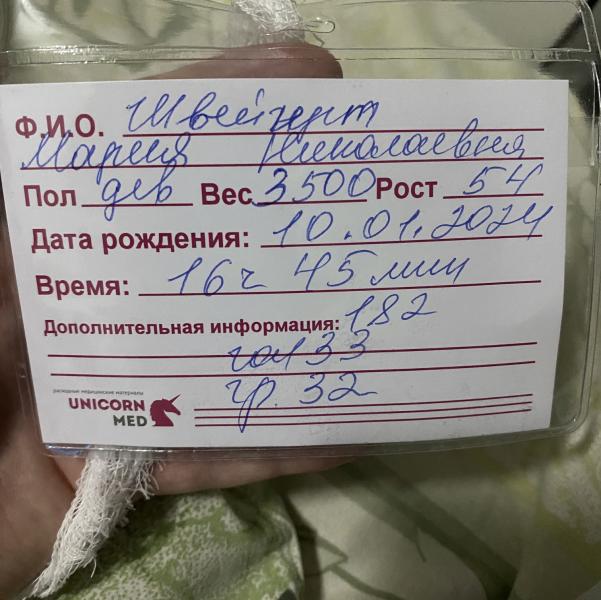 Ф.И.О. Швейгерт
Мария Николаевна
Пол дев Вес 3500 Рост 54
Дата рождения: 10.01.2024
Время: 16ч 45 мин
Дополнительная информация: 182
гол 33
гр. 32
расходные медицинские материалы
UNICORN
MED